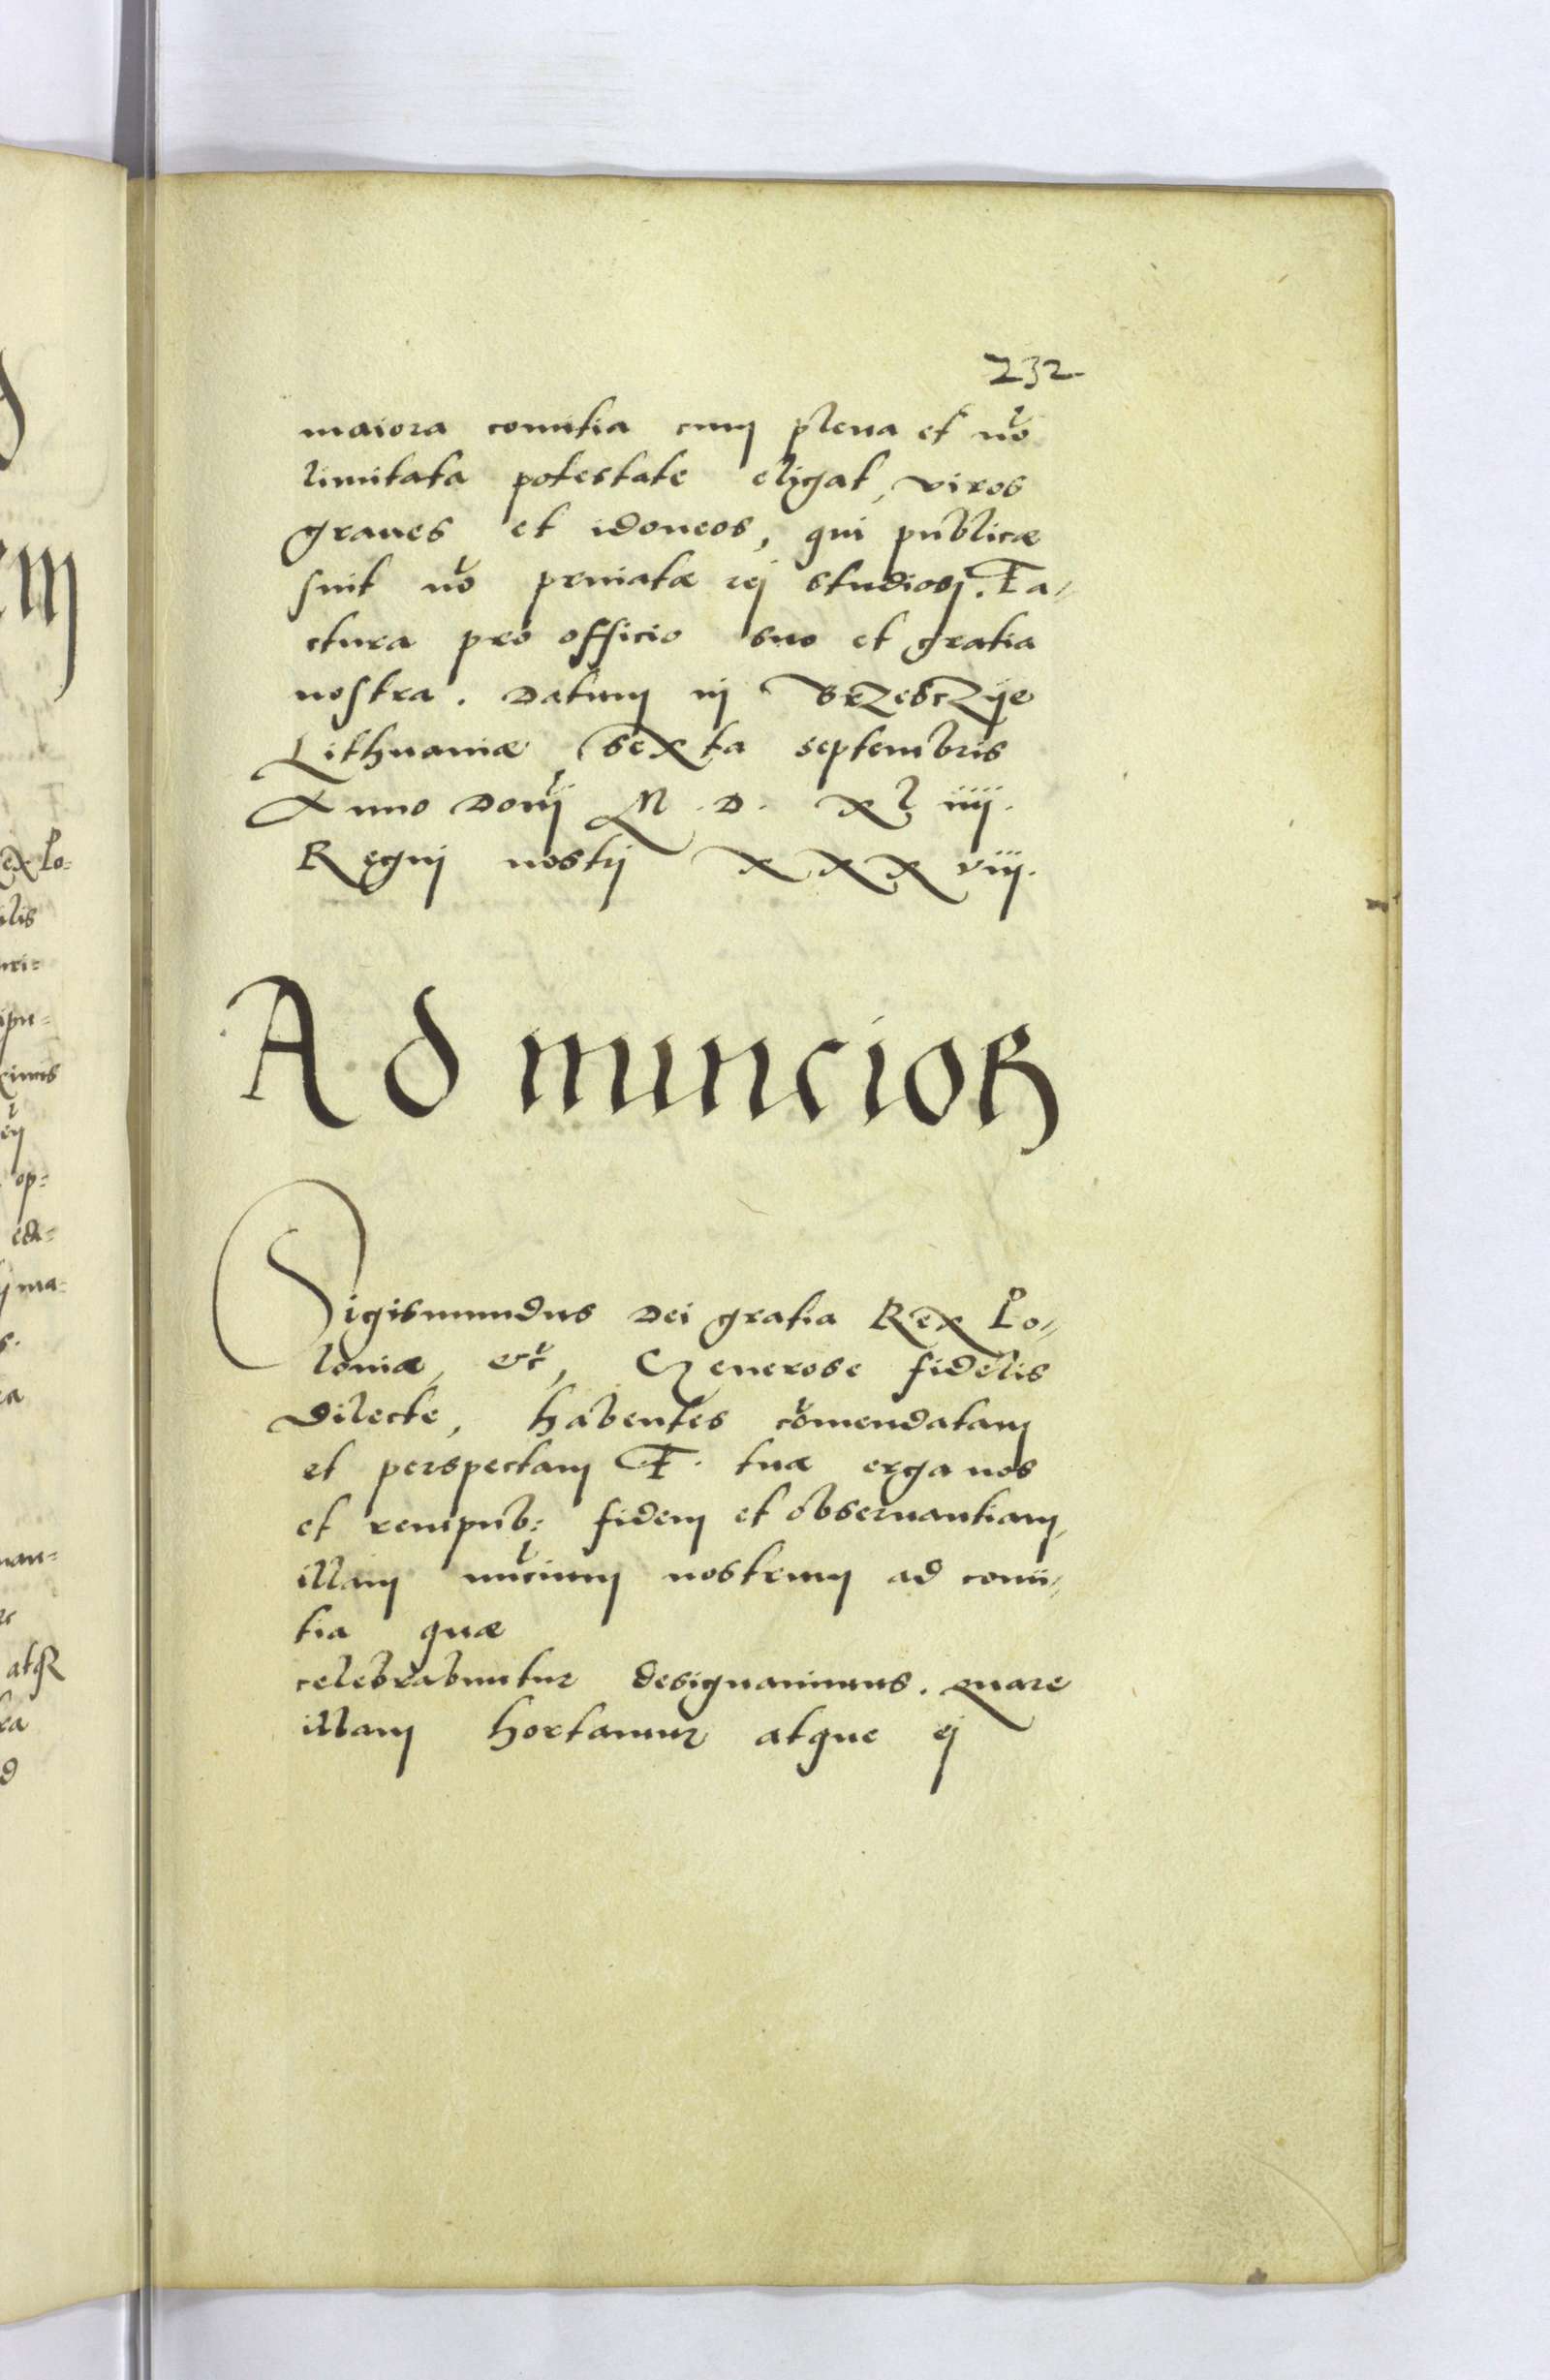 232
maiora comitia cum plena et nõ
limitata potestate eligat, viros
graues et idoneos, qui publicæ
sint nõ priuatæ rej studiosj. Fa-
ctura pro officio suo et gratia
nostra. Datum in Brzesczye
Lithuaniæ Sexta septembris
Anno Domj M. D. xl iiij.
Regnj nostrj xxxviij.
Ad nuncioꝝ
Sigismundus Dei gratia Rex Po-
loniæ, etc̃, Generose fidelis
Dilecte, habentes cõmendatam
et perspectam F. tuæ erga nos
et rempub: fidem et obseruantiam,
illam nũcium nostrum ad comi-
tia quæ
celebrabuntur designauimus. Quare
illam hortamur atque ej